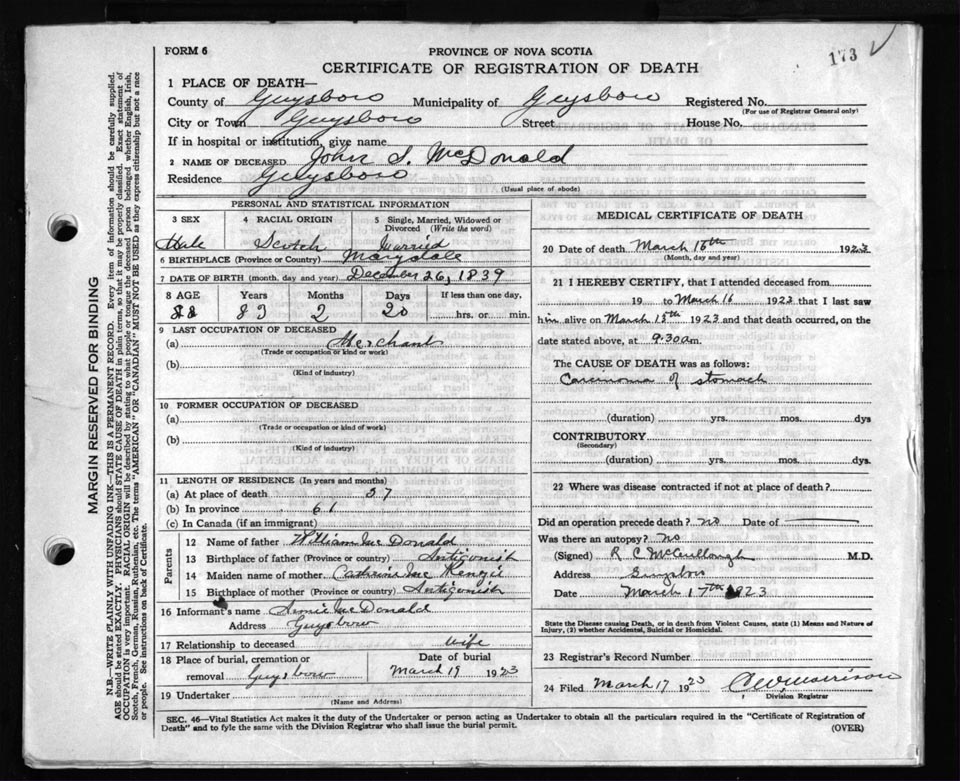 173 ✓
FORM 6
PROVINCE OF NOVA SCOTIA
CERTIFICATE OF REGISTRATION OF DEATH
1 PLACE OF DEATH—
County of Guysboro Municipality of Guysboro Registered No.
(For use of Registrar General only)
City or Town Guysboro Street House No.
If in hospital or institution, give name
2 NAME OF DECEASED John S. McDonald
Residence Guysboro
(Usual place of abode)
PERSONAL AND STATISTICAL INFORMATION
3 SEX 4 RACIAL ORIGIN 5 Single, Married, Widowed or
Divorced (Write the word)
Male Scotch Married
6 BIRTHPLACE (Province or Country) Marydale
7 DATE OF BIRTH (month, day and year) December 26, 1839
8 AGE Years Months Days If less than one day,
83 2 20 hrs. or min.
9 LAST OCCUPATION OF DECEASED
(a) Merchant
(Trade or occupation or kind or work)
(b)
(Kind of industry)
10 FORMER OCCUPATION OF DECEASED
(a)
(Trade or occupation or kind or work)
(b)
(Kind of industry)
11 LENGTH OF RESIDENCE (In years and months)
(a) At place of death 57
(b) In province 61
(c) In Canada (if an immigrant)
Parents
12 Name of father William Mc Donald
13 Birthplace of father (Province or country) Antigonish
14 Maiden name of mother Mc Kenzie
15 Birthplace of mother (Province or country) Antigonish
16 Informant's name Mc Donald
Address Guysboro
17 Relationship to deceased Wife
18 Place of burial, cremation or Date of burial
removal Guysboro March 19 1923
19 Undertaker
(Name and Address)
MEDICAL CERTIFICATE OF DEATH
20 Date of death March 16th 1923
(Month, day and year)
21 I HEREBY CERTIFY, that I attended deceased from
19 to March 16 1923 that I last saw
him alive on March 15th 1923 and that death occurred, on
date stated above, at 9.30 a.m.
The CAUSE OF DEATH was as follows:
Carcinoma of stomach
(duration) yrs. mos. dys
CONTRIBUTORY
(Secondary)
(duration) yrs. mos. dys.
22 Where was disease contracted if not at place of death?
Did an operation precede death? no Date of —
Was there an autopsy? no
(Signed) R C McCullough M.D.
Address Guysboro
Date March 17th 1923
State the Disease causing Death, or in death from Violent Causes, state (1) Means and Nature of
Injury, (2) whether Accidental, Suicidal or Homicidal.
23 Registrar's Record Number
24 Filed March 17 1923 Morrison
Division Registrar
SEC. 46—Vital Statistics Act makes it the duty of the Undertaker or person acting as Undertaker to obtain all the particulars required in the "Certificate of Registration of
Death" and to fyle the same with the Division Registrar who shall issue the burial permit.
(OVER)
MARGIN RESERVED FOR BINDING
N.B—WRITE PLAINLY WITH UNFADING INK—THIS IS A PERMANENT RECORD. Every item of information should be carefully supplied.
AGE should be stated EXACTLY. PHYSICIANS should STATE CAUSE OF DEATH in plain terms, so that it may be properly classified. Exact statement of
OCCUPATION is very important. RACIAL ORIGIN will be described by stating to what people or tongue the deceased person belonged whether English, Irish,
Scotch, French, German, Russian, Ruthenian, etc. The terms "AMERICAN" OR "CANADIAN" MUST NOT BE USED as they express citizenship but not a race
or people. See instructions on back of Certificate.